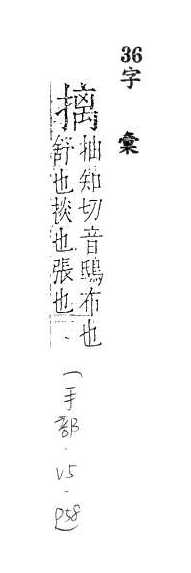 36字彙
摛
抽知切音鴟布也
舒也掞也張也
(手部.v5.p58)